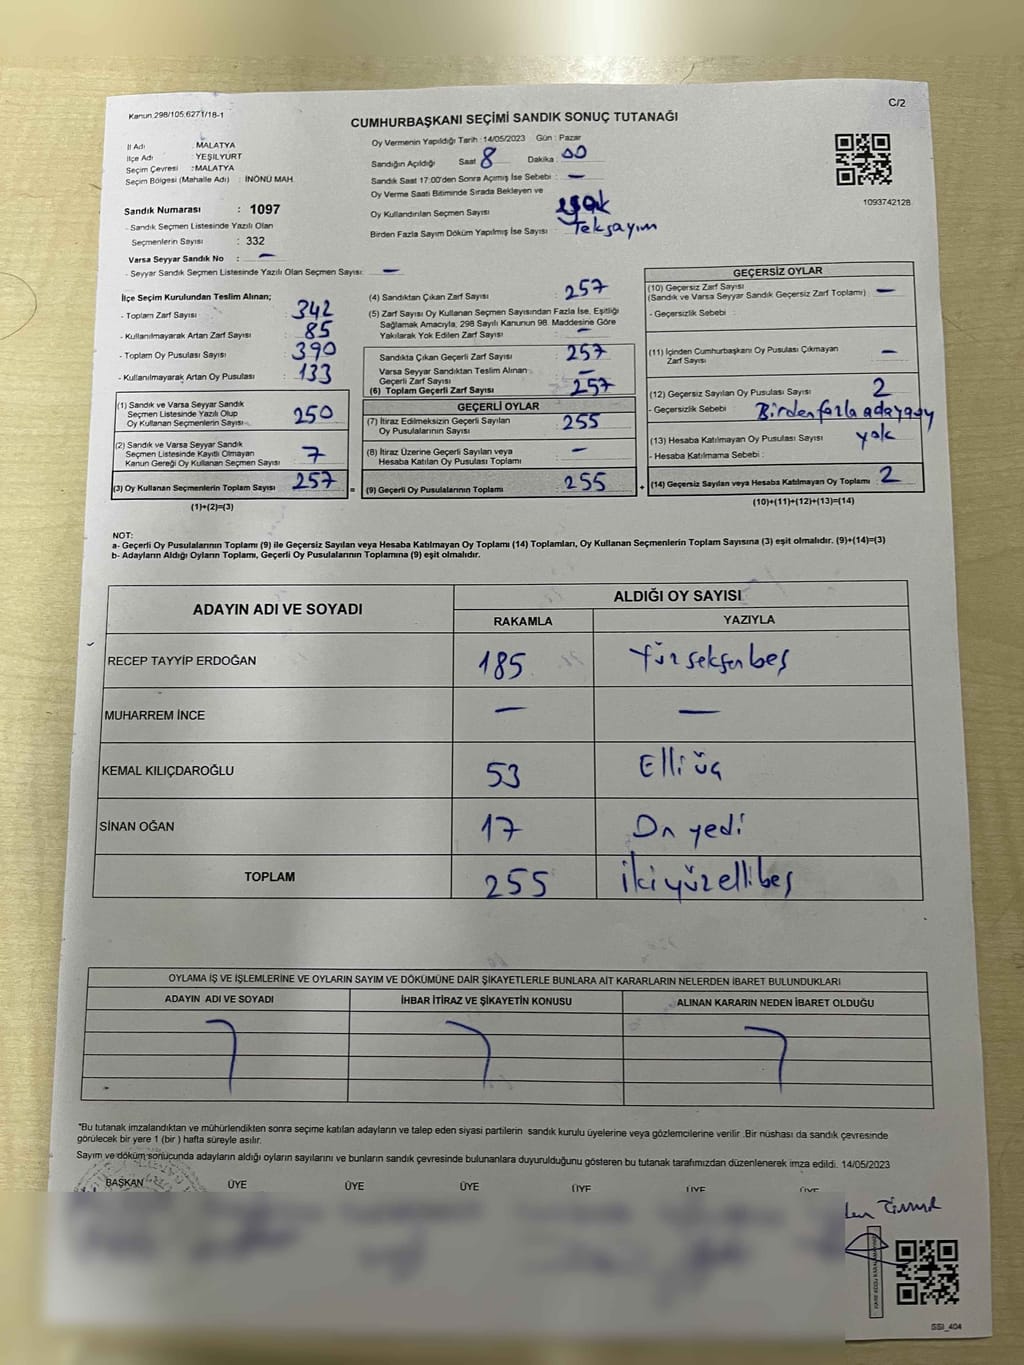 Kanun:298/105;6271/18-1
C/2
CUMHURBAŞKANI SEÇİMİ SANDIK SONUÇ TUTANAĞI
İl Adı : MALATYA
İlçe Adı : YEŞİLYURT
Seçim Çevresi : MALATYA
Seçim Bölgesi (Mahalle Adı) : İNÖNÜ MAH.
Sandık Numarası : 1097
- Sandık Seçmen Listesinde Yazılı Olan
Seçmenlerin Sayısı : 332
Varsa Seyyar Sandık No : —
- Seyyar Sandık Seçmen Listesinde Yazılı Olan Seçmen Sayısı: —
Oy Vermenin Yapıldığı Tarih :14/05/2023 Gün : Pazar
Sandığın Açıldığı Saat 8 Dakika : 00
Sandık Saat 17:00'den Sonra Açmış İse Sebebi : —
Oy Verme Saati Bitiminde Sırada Bekleyen ve
Oy Kullandırılan Seçmen Sayısı yok
Birden Fazla Sayım Döküm Yapılmış İse Sayısı : Tek sayım
1093742128
İlçe Seçim Kurulundan Teslim Alınan;
- Toplam Zarf Sayısı : 342
- Kullanılmayarak Artan Zarf Sayısı : 85
- Toplam Oy Pusulası Sayısı : 390
- Kullanılmayarak Artan Oy Pusulası : 133
(1) Sandık ve Varsa Seyyar Sandık
Seçmen Listesinde Yazılı Olup
Oy Kullanan Seçmen Sayısı : 250
(2) Sandık ve Varsa Seyyar Sandık
Seçmen Listesinde Kayıtlı Olmayan
Kanun Gereği Oy Kullanan Seçmen Sayısı : 7
(3) Oy Kullanan Seçmenlerin Toplam Sayısı : 257
(1)+(2)=(3)
(4) Sandıktan Çıkan Zarf Sayısı : 257
(5) Zarf Sayısı Oy Kullanan Seçmen Sayısından Fazla İse, Eşitliği
Sağlamak Amacıyla, 298 Sayılı Kanunun 98. Maddesine Göre
Yakılarak Yok Edilen Zarf Sayısı : —
Sandıkta Çıkan Geçerli Zarf Sayısı : 257
Varsa Seyyar Sandıktan Teslim Alınan
Geçerli Zarf Sayısı : —
(6) Toplam Geçerli Zarf Sayısı : 257
GEÇERLİ OYLAR
(7) İtiraz Edilmeksizin Geçerli Sayılan
Oy Pusulalarının Sayısı : 255
(8) İtiraz Üzerine Geçerli Sayılan veya
Hesaba Katılan Oy Pusulası Toplamı : —
= (9) Geçerli Oy Pusulalarının Toplamı : 255
GEÇERSİZ OYLAR
(10) Geçersiz Zarf Sayısı
(Sandık ve Varsa Seyyar Sandık Geçersiz Zarf Toplamı) : —
- Geçersizlik Sebebi :
(11) İçinden Cumhurbaşkanı Oy Pusulası Çıkmayan
Zarf Sayısı : —
(12) Geçersiz Sayılan Oy Pusulası Sayısı : 2
- Geçersizlik Sebebi : Birden fazla adaya oy
(13) Hesaba Katılmayan Oy Pusulası Sayısı : yok
- Hesaba Katılmama Sebebi :
+ (14) Geçersiz Sayılan veya Hesaba Katılmayan Oy Toplamı : 2
(10)+(11)+(12)+(13)=(14)
NOT:
a- Geçerli Oy Pusulalarının Toplamı (9) ile Geçersiz Sayılan veya Hesaba Katılmayan Oy Toplamı (14) Toplamları, Oy Kullanan Seçmenlerin Toplam Sayısına (3) eşit olmalıdır. (9)+(14)=(3)
b- Adayların Aldığı Oyların Toplamı, Geçerli Oy Pusulalarının Toplamına (9) eşit olmalıdır.
ADAYIN ADI VE SOYADI
ALDIĞI OY SAYISI
RAKAMLA YAZIYLA
RECEP TAYYİP ERDOĞAN 185 Yüz seksen beş
MUHARREM İNCE — —
KEMAL KILIÇDAROĞLU 53 Elli üç
SİNAN OĞAN 17 On yedi
TOPLAM 255 iki yüz elli beş
OYLAMA İŞ VE İŞLEMLERİNE VE OYLARIN SAYIM VE DÖKÜMÜNE DAİR ŞİKAYETLERLE BUNLARA AİT KARARLARIN NELERDEN İBARET BULUNDUKLARI
ADAYIN ADI VE SOYADI İHBAR İTİRAZ VE ŞİKAYETİN KONUSU ALINAN KARARIN NEDEN İBARET OLDUĞU
"Bu tutanak imzalandıktan ve mühürlendikten sonra seçime katılan adayların ve talep eden siyasi partilerin sandık kurulu üyelerine veya gözlemcilerine verilir .Bir nüshası da sandık çevresinde
görülecek bir yere 1 (bir ) hafta süreyle asılır.
Sayım ve döküm sonucunda adayların aldığı oyların sayılarını ve bunların sandık çevresinde bulunanlara duyurulduğunu gösteren bu tutanak tarafımızdan düzenlenerek imza edildi. 14/05/2023
BAŞKAN ÜYE ÜYE ÜYE ÜYE ÜYE ÜYE
SSI_404